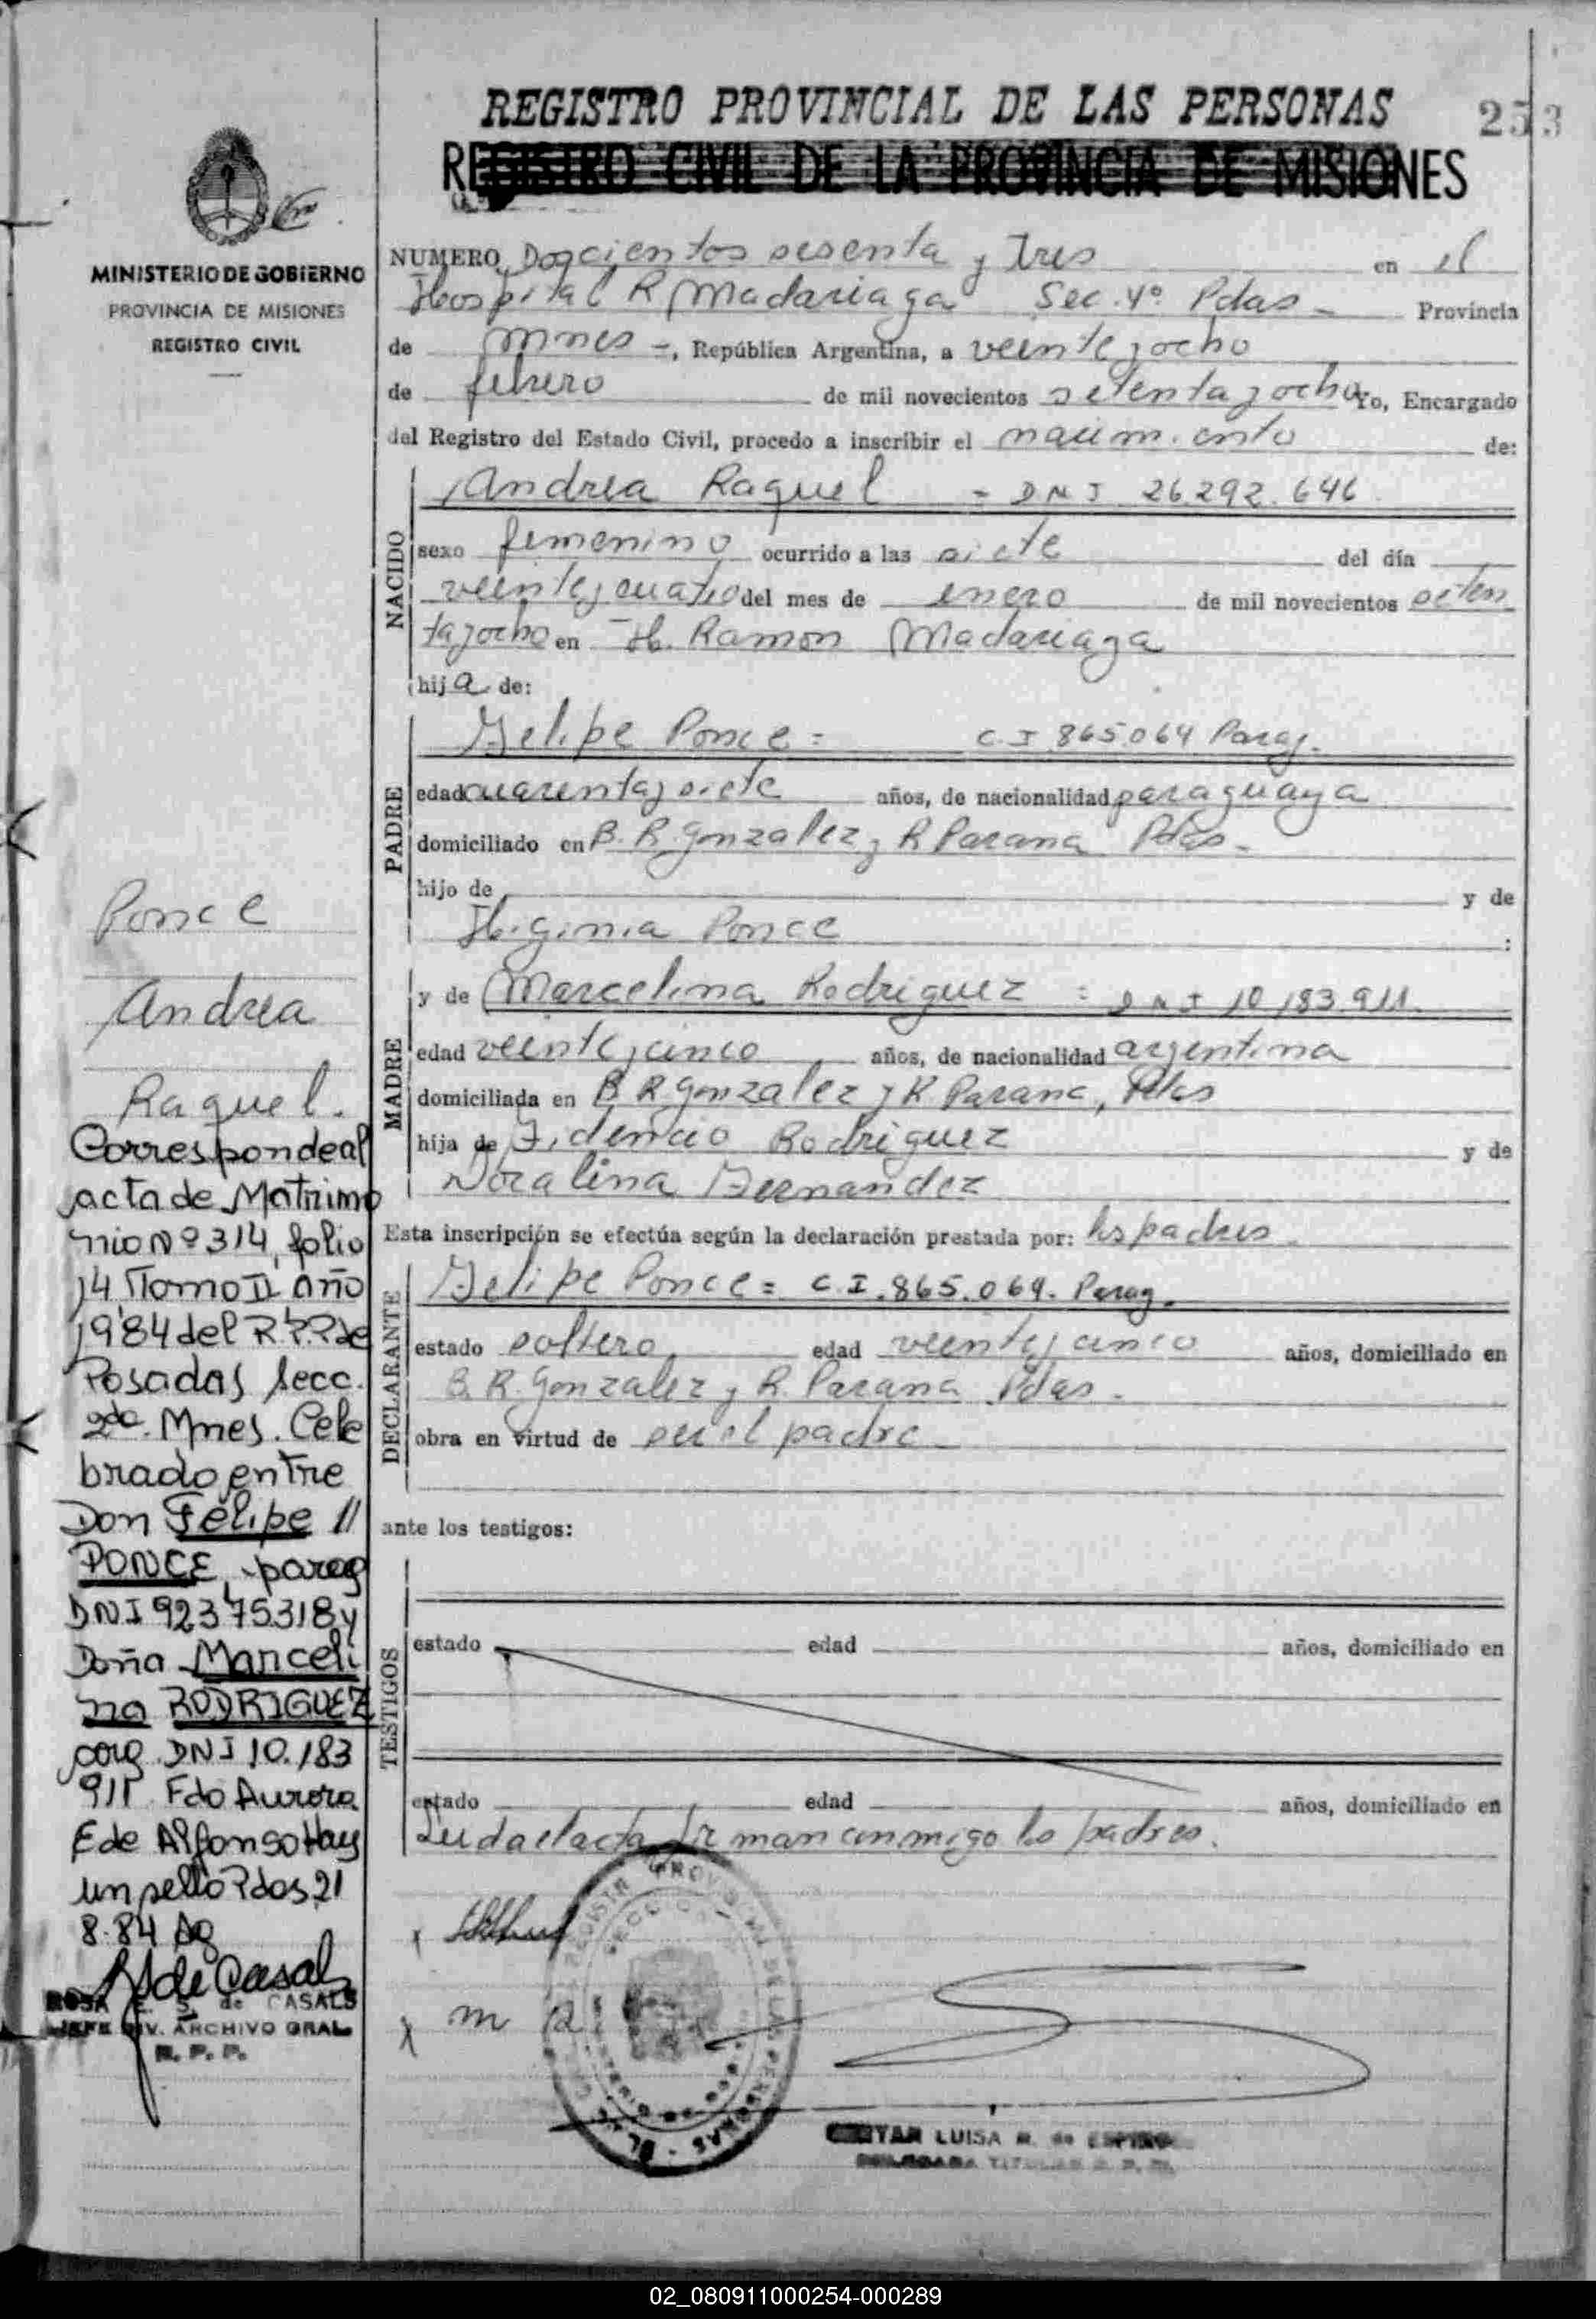 REGISTRO PROVINCIAL DE LAS PERSONAS
253
REGISTRO CIVIL DE LA PROVINCIA DE MISIONES
MINISTERIO DE GOBIERNO
PROVINCIA DE MISIONES
REGISTRO CIVIL
NUMERO Doscientos sesenta y Tres en el
Hospital R Madariaga Sec. 4º Pdas - Provincia
de Mnes -, República Argentina, a veinte y ocho
de febrero de mil novecientos setenta y ocho Yo, Encargado
del Registro del Estado Civil, procedo a inscribir el nacimiento de:
NACIDO
Andrea Raquel = DNI 26.292.646
sexo femenino ocurrido a las siete del día
veinte y cuatro del mes de enero de mil novecientos seten
ta y ocho en H. Ramon Madariaga
hija de:
PADRE
Felipe Ponce = C.I 865.064 Parag.
edad cuarenta y siete años, de nacionalidad paraguaya
domiciliado en B. R. Gonzalez y R Parana Pdas -
hijo de y de
Higinia Ponce :
MADRE
y de Marcelina Rodriguez = DNI 10.183.911.
edad veinte y cinco años, de nacionalidad argentina
domiciliada en B R Gonzalez y R Parana, Pdas
hija de Fidencio Rodriguez y de
Doralina Fernandez
Esta inscripción se efectúa según la declaración prestada por: los padres.
DECLARANTE
Felipe Ponce = C.I. 865.064. Parag.
estado soltero edad veinte y cinco años, domiciliado en
B. R. Gonzalez y R. Parana Pdas -
obra en virtud de ser el padre -
ante los testigos:
TESTIGOS
estado edad años, domiciliado en
estado edad años, domiciliado en
Leida el acta firman conmigo los padres.
x
x m R
LUISA
Ponce
Andrea
Raquel.
Corresponde al
acta de Matrimo
nio Nº 314, folio
14 Tomo II Año
1984 del R.P.P de
Posadas Secc.
2da. Mnes. Cele
brado entre
Don Felipe //
PONCE, parag
DNI 92375318 y
Doña Marceli
na RODRIGUEZ
arg. DNI 10.183
911 Fdo Aurora
E de Alfonso Hay
un sello Pdas, 21
8.84
R S de Casals
ROSA E. S. de CASALS
JEFE DIV. ARCHIVO GRAL.
R. P. P.
02_080911000254-000289